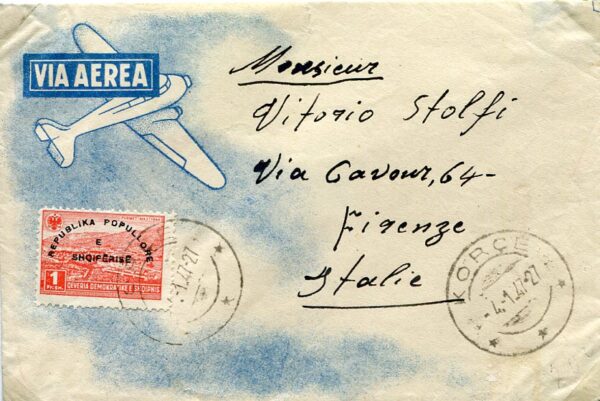 VIA AEREA
Monsieur
Vitorio Stolfi
Via Cavour, 64-
Firenze
Italie
REPUBLIKA POPULLORE
E
SHQIPËRISË
1
FR. SHQ.
QEVERIA DEMOKRATIKE E SHQIPNIS
47-27
KORÇË
-4.1.47-27